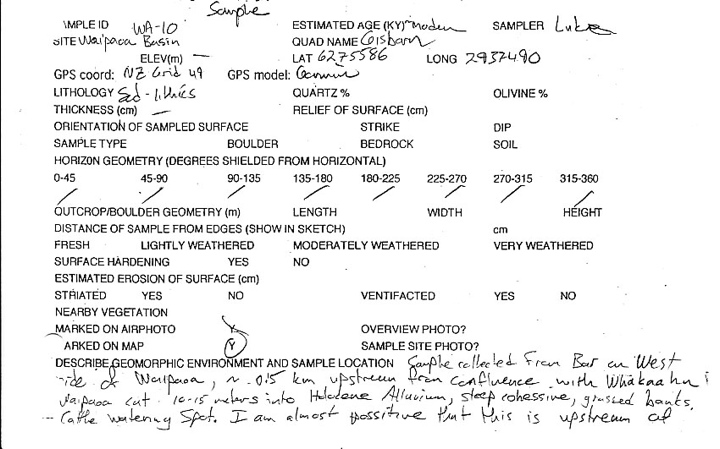 Sample
MPLE ID WA-10 ESTIMATED AGE (KY) ~moden SAMPLER Luke
SITE Waipaoa Basin QUAD NAME Gisborn
ELEV(m) — LAT 6275586 LONG 2937490
GPS coord: NZ Grid 49 GPS model: Garmin
LITHOLOGY Sed-lithics QUARTZ % OLIVINE %
THICKNESS (cm) — RELIEF OF SURFACE (cm)
ORIENTATION OF SAMPLED SURFACE STRIKE DIP
SAMPLE TYPE BOULDER BEDROCK SOIL
HORIZON GEOMETRY (DEGREES SHIELDED FROM HORIZONTAL)
0-45 45-90 90-135 135-180 180-225 225-270 270-315 315-360
OUTCROP/BOULDER GEOMETRY (m) LENGTH WIDTH HEIGHT
DISTANCE OF SAMPLE FROM EDGES (SHOW IN SKETCH) cm
FRESH LIGHTLY WEATHERED MODERATELY WEATHERED VERY WEATHERED
SURFACE HARDENING YES NO
ESTIMATED EROSION OF SURFACE (cm)
STRIATED YES NO VENTIFACTED YES NO
NEARBY VEGETATION
MARKED ON AIRPHOTO Y OVERVIEW PHOTO?
ARKED ON MAP Y SAMPLE SITE PHOTO?
DESCRIBE GEOMORPHIC ENVIRONMENT AND SAMPLE LOCATION Sample collected From Bar on West
ide of Waipaoa, ~ 0.5 km upstream from confluence with Whakaahu
Waipaoa cut 10-15 meters into Holocene Alluvium, steep cohessive, grassed banks.
Cattle watering Spot. I am almost possitive that this is upstream of